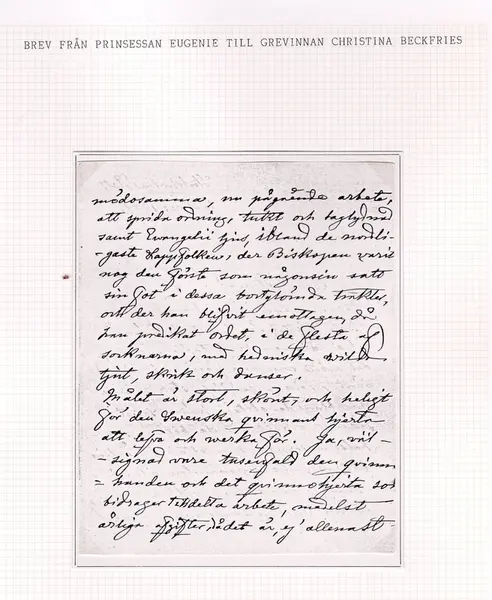 BREV FRÅN PRINSESSAN EUGENIE TILL GREVINNAN CHRISTINA BECKFRIES
mödosamma, nu pågående arbete,
att sprida ordning, tukt och
samt Evangelii ljus, ibland de nordli-
-gaste Lappfolken, der Biskopen varit
nog den förste som någonsin satt
sin fot i dessa bortglömda trakter,
och der han blifvit emottagen, då
han predikat ordet, i de flesta af
socknarna, med hedniska vilda
tjut, skrik och danser.
Målet är stort, skönt, och heligt
för den Swenska qvinnans hjerta
att lefva och werka för. Ja, väl-
-signad vare tusenfald den qvinn
=handen och det qvinnohjerta som
bidrager till detta arbete, medelst
årliga afgifter, rådet är, ej allenast